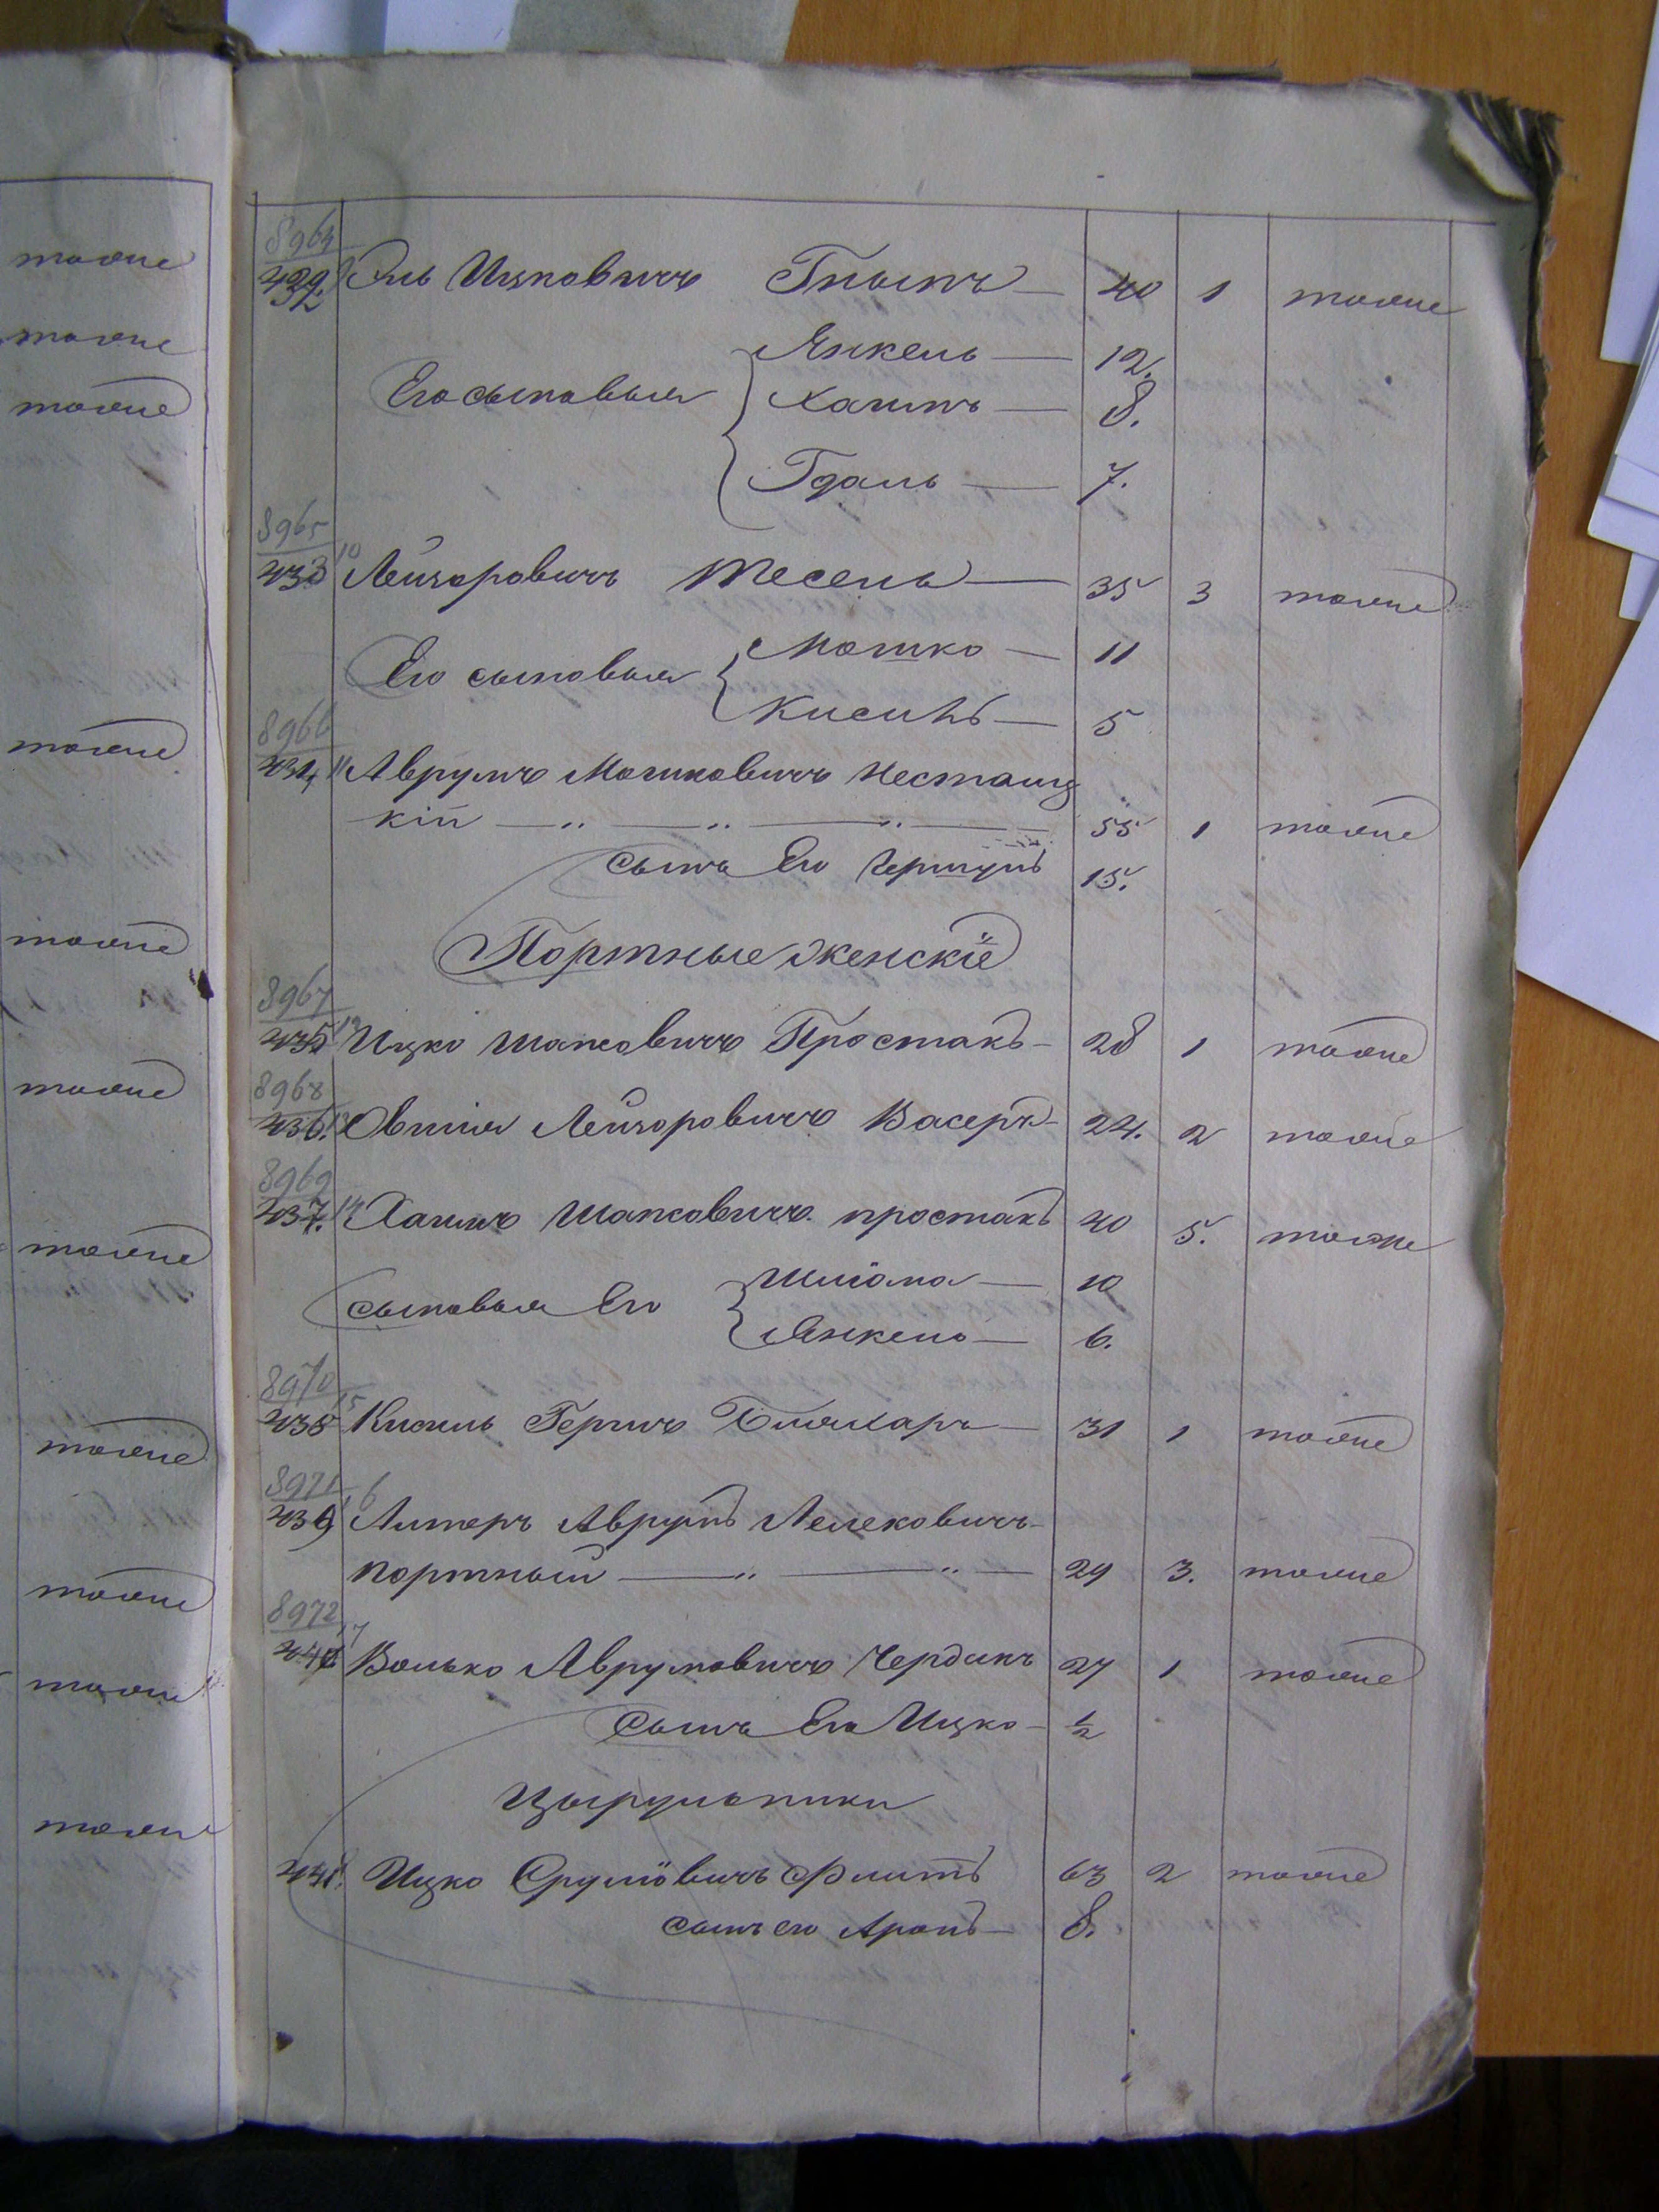 тоже
тоже
тоже
тоже
тоже
тоже
тоже
тоже
тоже
тоже
тоже
8964
432. 9 Эль Ицковичъ 40 1 тоже
Его сыновья Янкель — 12.
Хаимъ — 8.
Гдаль — 7.
8965
433 10 Лейзоровичъ Тесель — 35 3 тоже
Его сыновья Мошко — 11
Кисиль — 5
8966
434 11 Аврумъ Мошковичъ Нестаиц
кій — " — " — " — 55 1 тоже
Сынъ Его Гершунъ 15.
Портные женскіе
8967
435 12 Ицко Шапсовичъ Простакъ — 28 1 тоже
8968
436. 13 Овшія Лейзоровичъ Васеръ — 24. 2 тоже
8969
437. 14 Хаимъ Шапсовичъ простакъ 40 5. тоже
сыновья Его Шліома — 10
Янкель — 6.
8970
438 15 Кисиль Гершъ Бляхаръ — 31 1 тоже
8971
439 16 Аврумъ Лелековичъ
портной — " — " — 29 3. тоже
8972
440 17 Волько Аврумовичъ Чердикъ 27 1 тоже
Сынъ Его Ицко — 1/2
Цырульники
441. Ицко Сруліовичъ Флитъ 63 2 тоже
сынъ его Аронъ — 8.